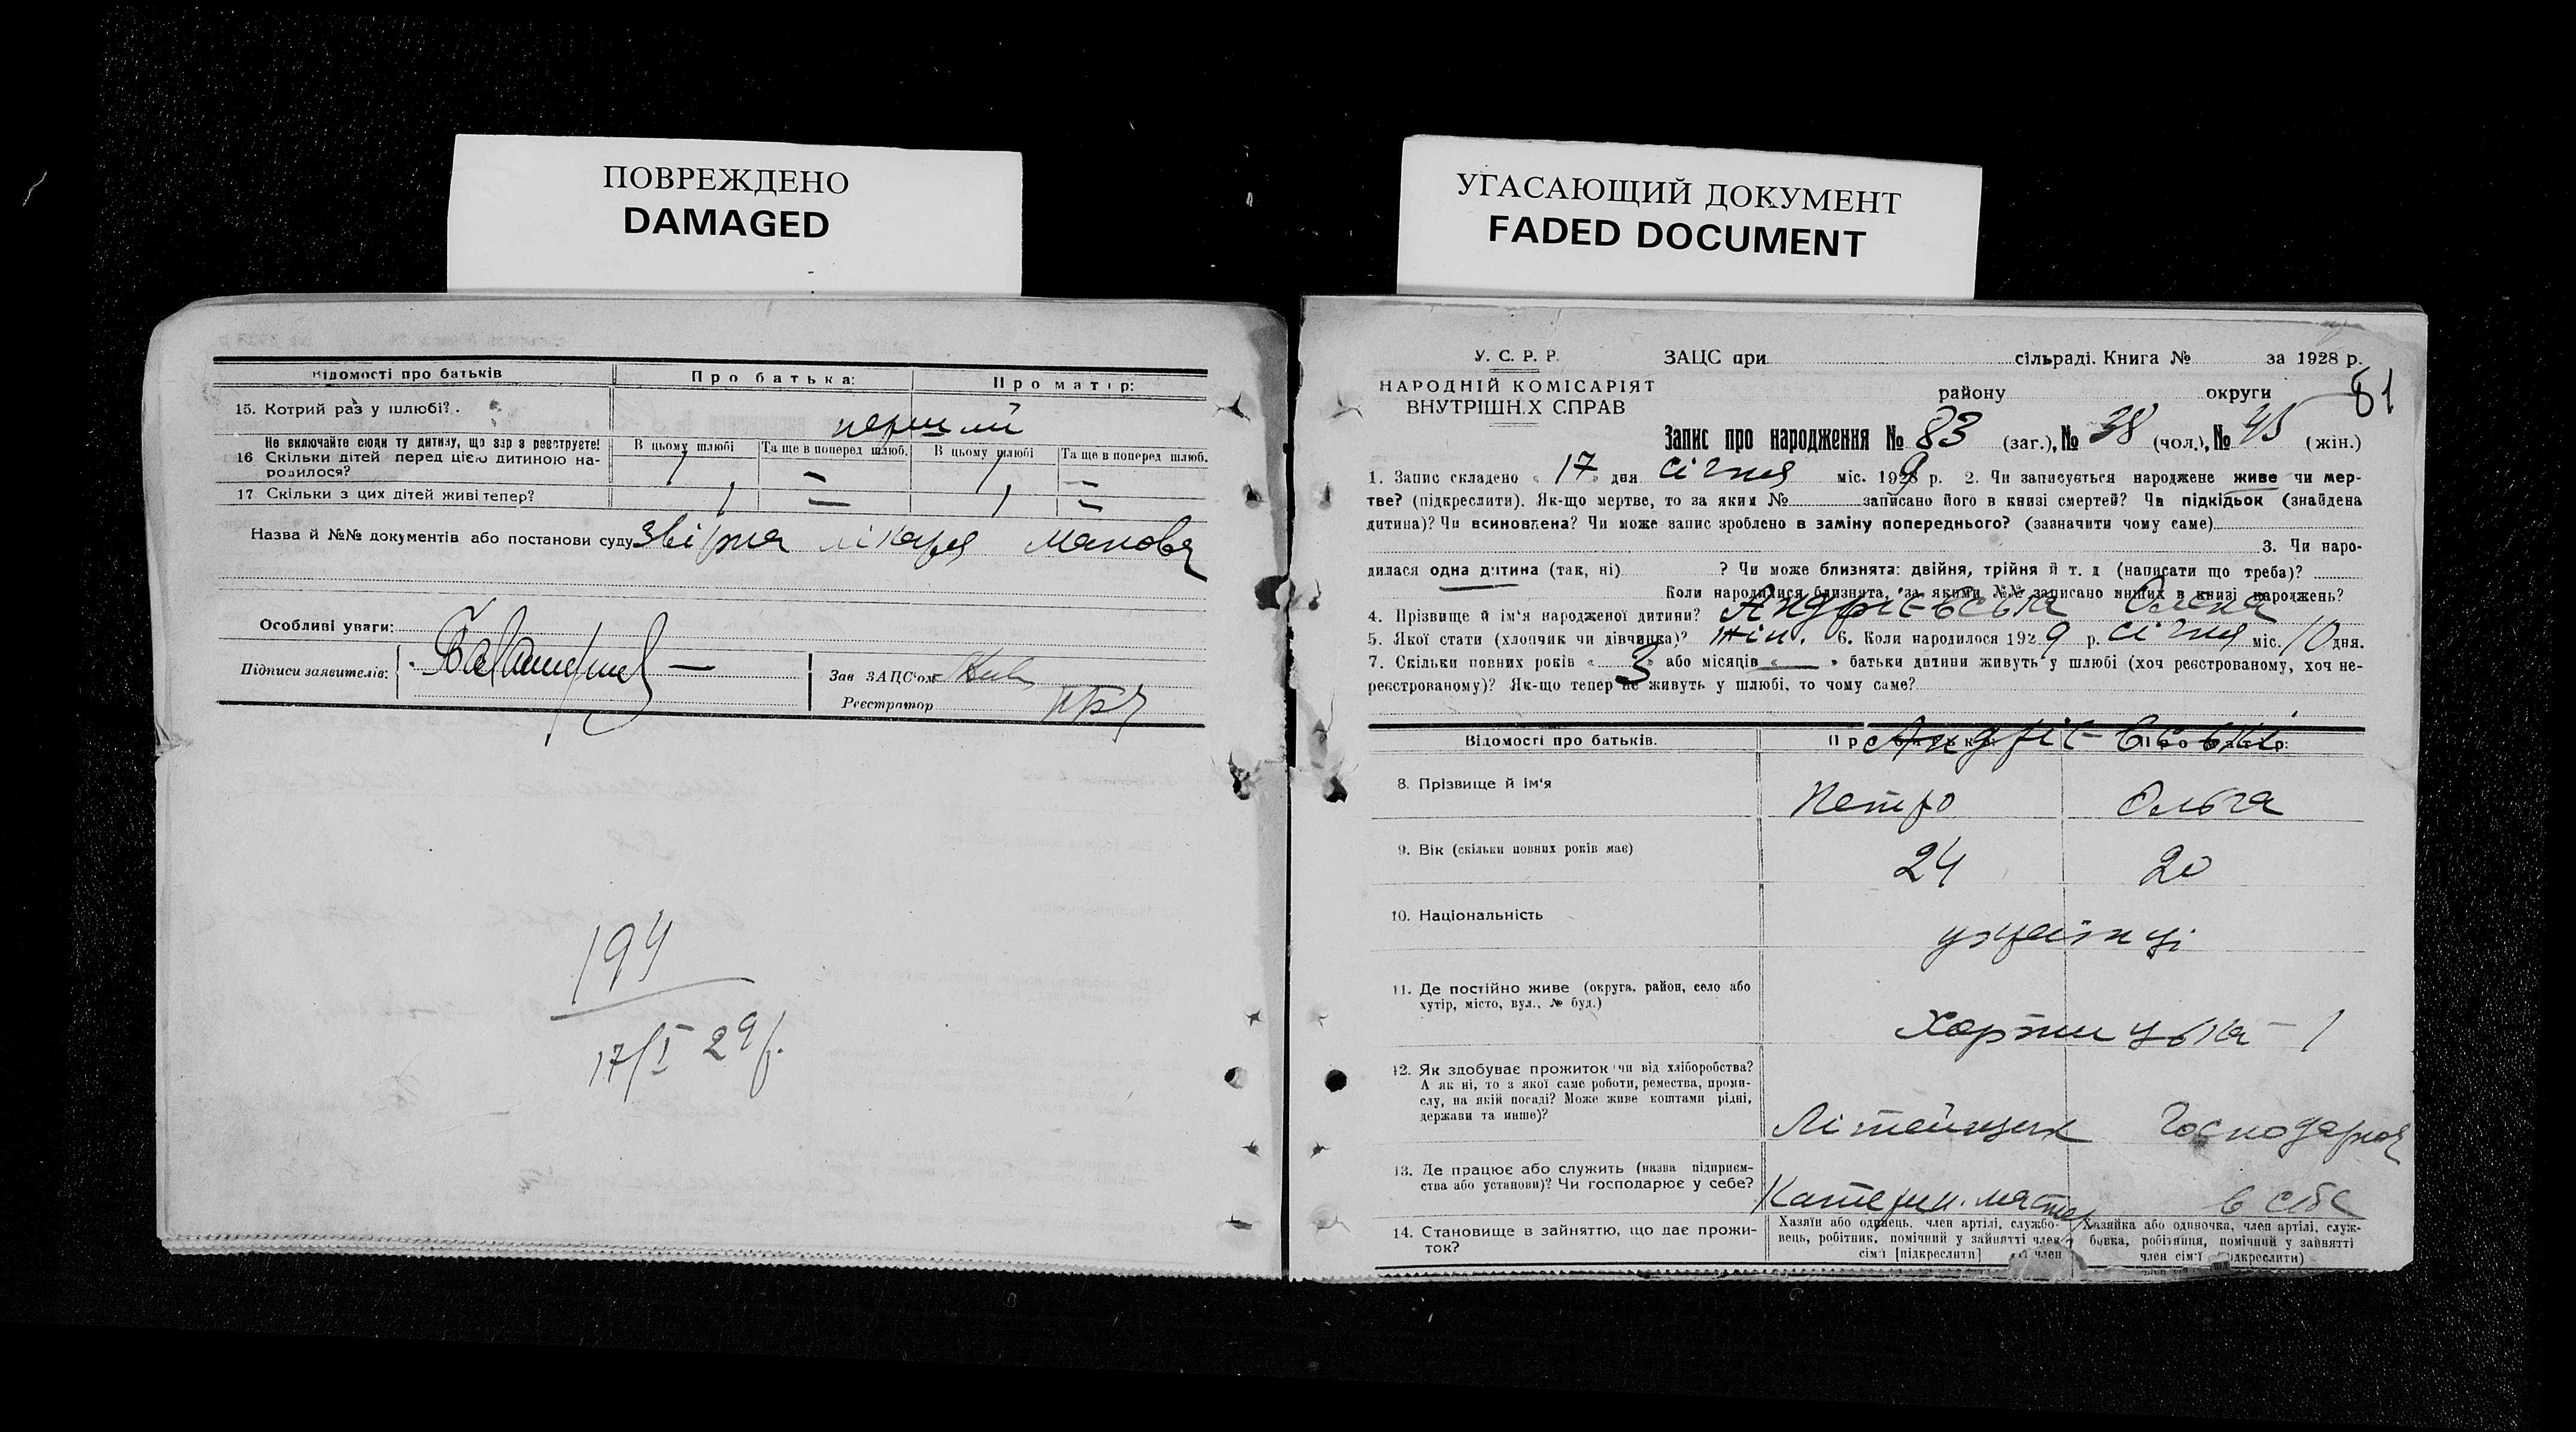 ПОВРЕЖДЕНО
DAMAGED
УГАСАЮЩИЙ ДОКУМЕНТ
FADED DOCUMENT
Відомості про батьків Про батька: Про матір:
15. Котрий раз у шлюбі? перший
Не включайте сюди ту дитину, що зар з реєструєте!
16 Скільки дітей перед цією дитиною народилося?
В цьому шлюбі Та ще в поперед шлюб. В цьому шлюбі Та ще в поперед шлюб.
1 — 1 —
17 Скільки з цих дітей живі тепер? 1 — 1 —
Назва й №№ документів або постанови суду лікаря
Особливі уваги:
Підписи заявителів:
Зав ЗАЦС'ом
Реєстратор
194
17/I 29р.
У. С. Р. Р. ЗАЦС при сільраді. Книга № за 1928 р.
НАРОДНІЙ КОМІСАРІЯТ району округи 81
ВНУТРІШН.Х СПРАВ
Запис про народження № 83 (заг.), № 38 (чол.), № 45 (жін.)
1. Запис складено « 17 » дня січня міс. 1929 р. 2. Чи записується народжене живе чи мер-
тве? (підкреслити). Як-що мертве, то за яким № записано його в книзі смертей? Чи підкідьок (знайдена
дитина)? Чи всиновлена? Чи може запис зроблено в заміну попереднього? (зазначити чому саме)
3. Чи наро-
дилася одна дитина (так, ні) ? Чи може близнята: двійня, трійня й т. д (написати що треба)?
Коли народилися близнята, за якими №№ записано инших в книзі народжень?
4. Прізвище й ім'я народженої дитини? Андрієвська Олена
5. Якої стати (хлопчик чи дівчинка)? жін. 6. Коли народилося 1929 р. січня міс. 10 дня.
7. Скільки повних років « 3 » або місяців « — » батьки дитини живуть у шлюбі (хоч реєстрованому, хоч не-
реєстрованому)? Як-що тепер не живуть у шлюбі, то чому саме?
Відомості про батьків. Про батька: Про матір:
Андрієвські
8. Прізвище й ім'я Петро Ольга
9. Вік (скільки повних років має) 24 20
10. Національність українці
11. Де постійно живе (округа, район, село або
хутір, місто, вул., № буд.)
Хортицька 1
12. Як здобуває прожиток чи від хліборобства?
А як ні, то з якої саме роботи, ремества, проми-
слу, на якій посаді? Може живе коштами рідні,
держави та инше)?
Літейщик Господарка
13. Де працює або служить (назва підприєм-
ства або установи)? Чи господарює у себе?
Катерин. майстер в себе
14. Становище в зайняттю, що дає прожи-
ток?
Хазяїн або одинець, член артілі, службо-
вець, робітник, помічний у зайнятті член
сім'ї [підкреслити]
Хазяйка або одиночка, член артілі, служ-
бовка, робітниця, помічний у зайнятті
член сім'ї (підкреслити)